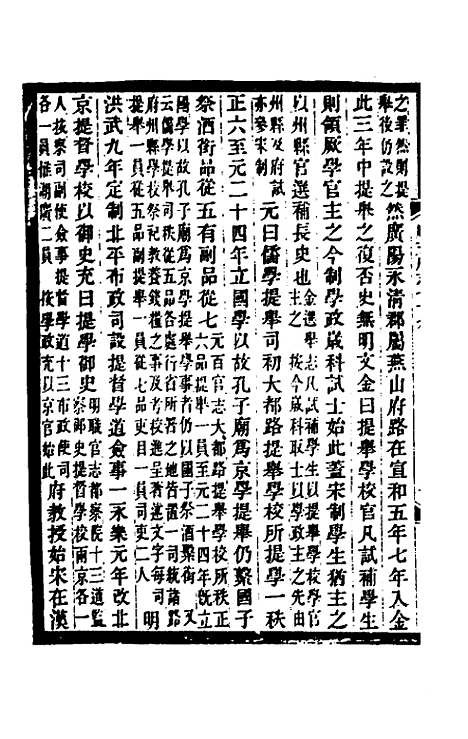 之業然則提舉後仍設之然廣陽永清郡屬燕山府路在宣和五年七年入金
此三年中提舉之復否史無明文金曰提舉學校官凡試補學生
則領厥學官主之今制學政歲科試士始此蓋宋制學生猶主之
以州縣官選補長史也金選舉志凡試補學生以提舉學校學官主之 按今歲科取士以學政主之先由
州縣及府試亦參宋制元曰儒學提舉司初大都路提舉學校所提學一秩
正六至元二十四年立國學以故孔子廟爲京學提舉仍繫國子
祭酒銜品從五有副品從七元百官志大都路提舉學校所秩正六品提舉一員至元二十四年既立
國學以故孔子廟爲京學提舉學事者仍以國子祭酒繫銜 又云儒學提舉司秩從五品各處行省所署之地皆置一司統諸路
府州縣學校祭祀教養錢糧之事及考校進呈著述文字每司提舉一員從五品副提舉一員從七品吏目一員司吏二人明
洪武九年定制北平布政司設提督學道僉事一永樂元年改北
京提督學校以御史充曰提學御史明職官志都察院十三道監察御史提督學校兩京各一
人按察司副使僉事提督學道十三布政使司各一員惟湖廣二員 按學政充以京官始此府教授始宋在漢